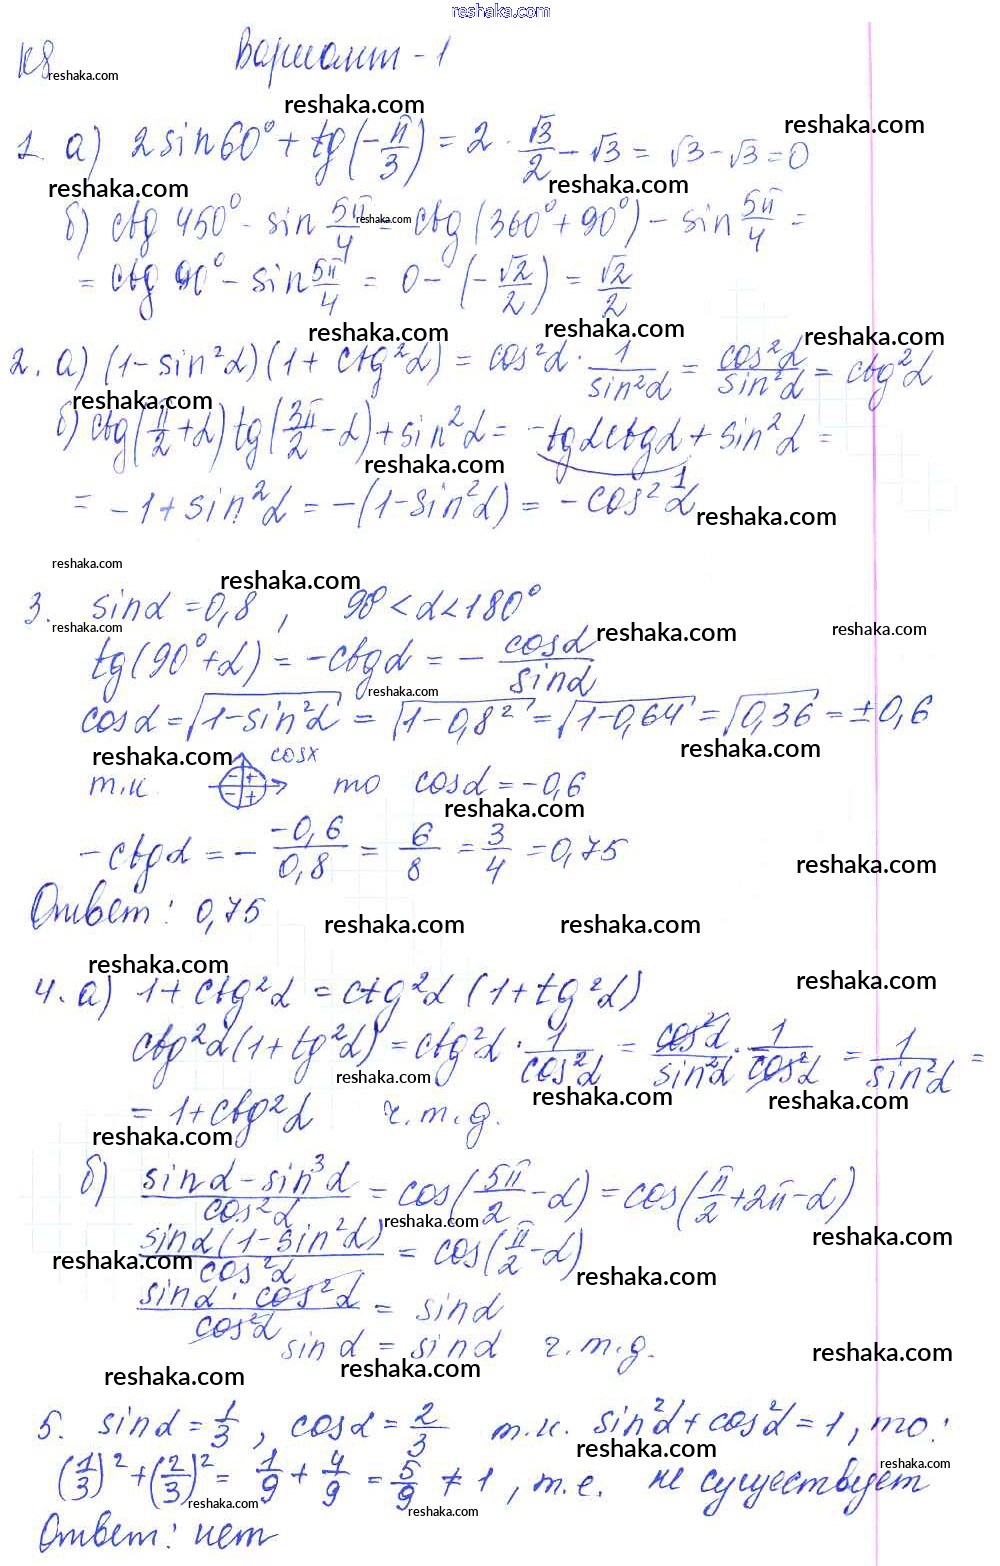 reshaka.com
К8 Вариант - 1
reshaka.com
reshaka.com reshaka.com
1. а) 2 sin 60° + tg(-π/3) = 2 · √3/2 - √3 = √3 - √3 = 0
reshaka.com reshaka.com
б) ctg 450° - sin 5π/4 = ctg(360° + 90°) - sin 5π/4 =
reshaka.com
= ctg 90° - sin 5π/4 = 0 - (-√2/2) = √2/2
reshaka.com reshaka.com reshaka.com
2. а) (1 - sin²α)(1 + ctg²α) = cos²α · 1/sin²α = cos²α/sin²α = ctg²α
reshaka.com
б) ctg(π/2 + α) tg(3π/2 - α) + sin²α = -tgα ctgα + sin²α =
reshaka.com 1
= -1 + sin²α = -(1 - sin²α) = -cos²α
reshaka.com
reshaka.com reshaka.com
3. sinα = 0,8 , 90° < α < 180°
reshaka.com reshaka.com reshaka.com
tg(90° + α) = -ctgα = - cosα/sinα
reshaka.com
cosα = √(1 - sin²α) = √(1 - 0,8²) = √(1 - 0,64) = √0,36 = ±0,6
reshaka.com cosx reshaka.com
т.к. - + - + то cosα = -0,6
reshaka.com
-ctgα = - -0,6/0,8 = 6/8 = 3/4 = 0,75
reshaka.com
Ответ: 0,75
reshaka.com reshaka.com
reshaka.com reshaka.com
4. а) 1 + ctg²α = ctg²α (1 + tg²α)
ctg²α(1 + tg²α) = ctg²α · 1/cos²α = cos²α/sin²α · 1/cos²α = 1/sin²α =
reshaka.com reshaka.com reshaka.com
= 1 + ctg²α ч.т.д.
reshaka.com
б) sinα - sin³α/cos²α = cos(5π/2 - α) = cos(π/2 + 2π - α)
reshaka.com reshaka.com
sinα(1 - sin²α)/cos²α = cos(π/2 - α)
reshaka.com reshaka.com
sinα · cos²α/cos²α = sinα
sinα = sinα ч.т.д.
reshaka.com
reshaka.com reshaka.com
5. sinα = 1/3 , cosα = 2/3 т.к. sin²α + cos²α = 1, то:
reshaka.com reshaka.com
(1/3)² + (2/3)² = 1/9 + 4/9 = 5/9 ≠ 1 , т.е. не существует
reshaka.com reshaka.com
Ответ: нет